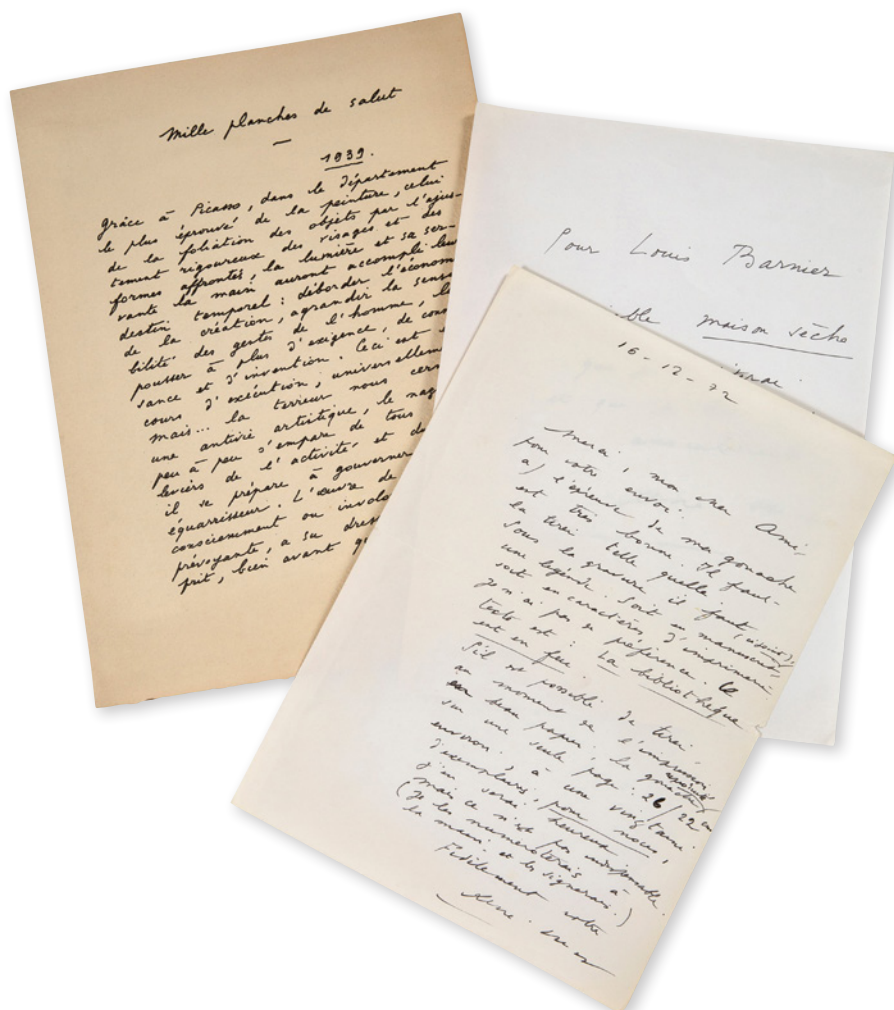 Mille planches de salut
1939.
Grâce à Picasso, dans le département
le plus éprouvé de la peinture, celui
de la foliation des objets par l'ajus-
tement rigoureux des visages et des
formes affrontés, la lumière et sa ser-
vante la main auront accompli leur
destin temporel : déborder l'économ
de la création, agrandir la sensi
bilité des gestes de l'homme, le
pousser à plus d'exigence, de conn
sance et d'invention. Ceci est e
cours d'exécution, universellem
mais... la terreur nous cern
une antivié artistique, le naz
peu à peu s'empare de tous
leviers de l'activité, et do
il se prépare à gouverner
équarrisseur. L'œuvre de
consciemment ou involo
prévoyante, a su dres
prit, bien avant qu
Pour Louis Barnier
ble maison sèche
16-12-72
Merci, mon cher Ami
pour votre envoi.
a) l'épreuve de ma gouache
est très bonne. Il faut
la tirer telle quelle.
Sous la gravure il faut
une légende. Soit en manuscrit
soit en caractères d'imprimerie
je n'ai pas de préférence. Le
texte est : La bibliothèque
est en feu.
S'il est possible de tirer
au moment de l'impression
beau papier, la gouache
sur une seule page : 26/22 cm
environ, à une vingtaine
d'exemplaires, pour nous,
j'en serai heureux
mais ce n'est pas indispensable.
(Je les numéroterais à
la main et les signerais.)
Fidèlement votre
René Char